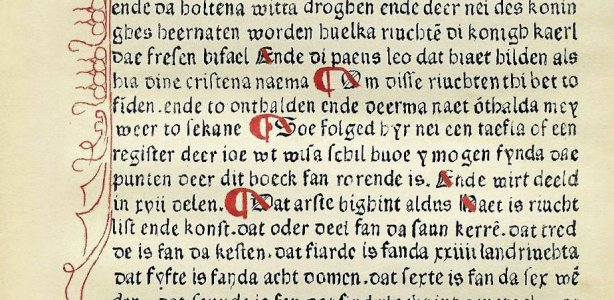 ende da holtena witta droghen ende deer nei des konin
ghes heernaten worden huelka riuchtē di konigh kaerl
dae fresen bifael Ende di paens leo dat biaet bilden als
hia dine cristena naema ¶ Om disse riuchten thi bet to
fiden. ende to onthalden ende deerma naet ōthalda mey
weer to sekane ¶ Soe folged hyr nei een taefla of een
register deer ioe wt wisa schil huoe y mogen fynda dae
punten deer dit boeck fan rorende is. Ende wirt deeld
in xvii delen. ¶ Dat arste bighint aldus Haet is riucht
list ende konst. dat oder deel fan da saun kerrē. dat tred
de is fan da kesten. dat fiarde is fanda xxiiii landriuchta
dat fyfte is fanda acht domen. dat sexte is fan da sex wē